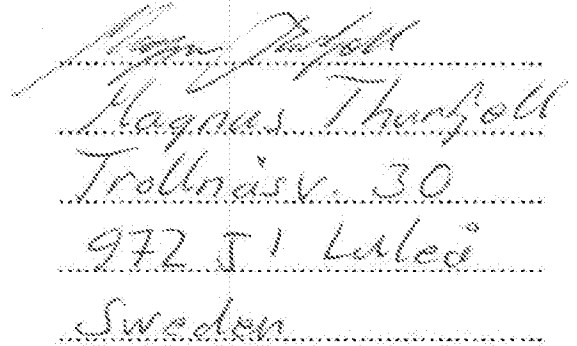 Magnus Thurfjell
Magnus Thurfjell
Trollnäsv. 30
972 51 Luleå
Sweden